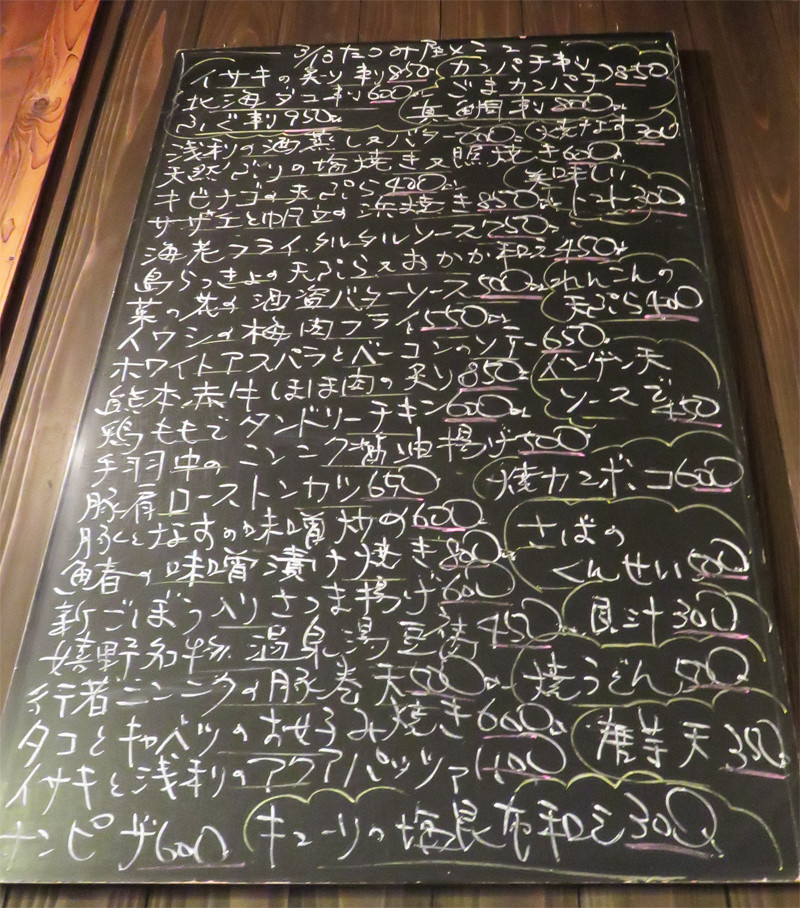 3/13 たつみ屋メニュー
イサキの炙り刺850 カンパチ刺
ごまカンパチ 850
北海ダコ刺600 真鯛刺800
ふぐ刺950
浅利の酒蒸し又バター600 焼なす300
天然ぶりの塩焼き又照焼き600
キビナゴの天ぷら400 美味しい
トマト300
サザエと帆立の浜焼き850
海老フライ、タルタルソース750
島らっきょの天ぷら又おかか和え450
菜の花の酒盗バターソース500 れんこんの
天ぷら400
イワシの梅肉フライ550
ホワイトアスパラとベーコンのソテー650
熊本赤牛ほほ肉の炙り850 インゲン天
ソースで450
鶏ももでタンドリーチキン600
手羽中のニンニク醤油揚げ500
豚肩ローストンカツ650 焼カマボコ600
豚となすの味噌炒め600
さばの
くんせい500
鰆の味噌漬け焼き800
新ごぼう入りさつま揚げ600
嬉野名物、温泉湯豆腐450 貝汁300
行者ニンニクの豚巻天500 焼うどん500
タコとキャベツのお好み焼き600 磨芋天350
イサキと浅利のアクアパッツァ1100
ナンピザ600 キューリの塩昆布和え300